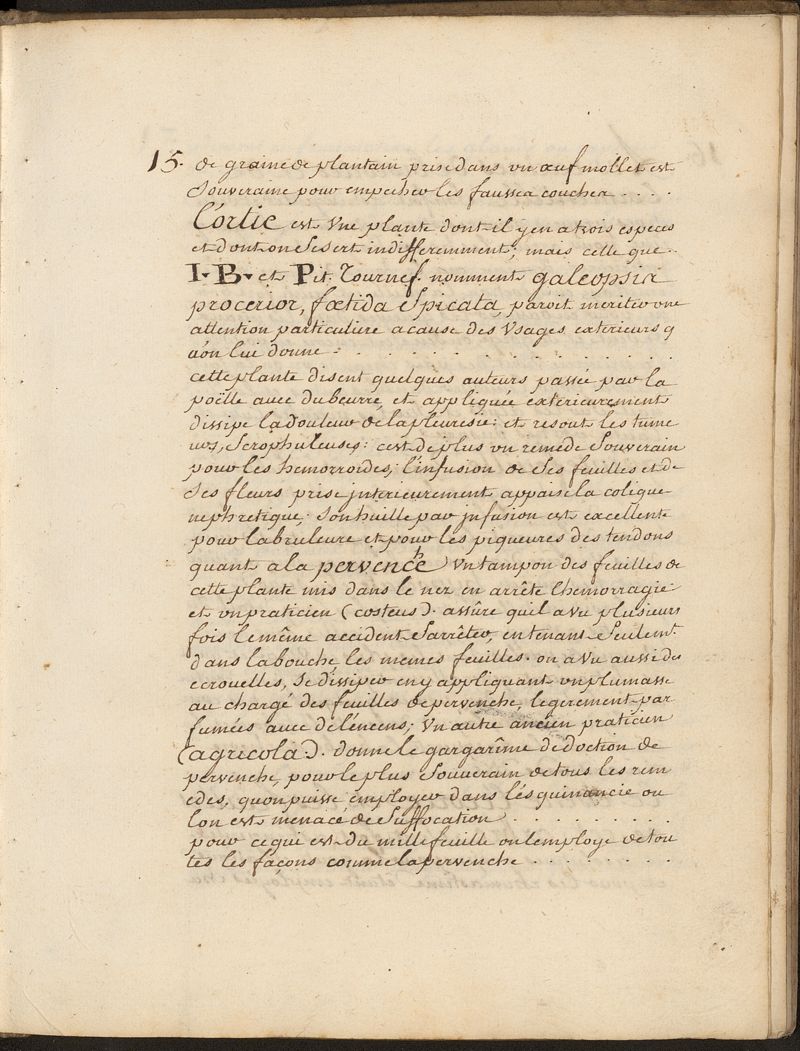 15. de graine de plantain prise dans un œuf mollet est
souveraine pour empecher les fausses couches . . . .
L'ortie est une plante dont il y en a trois especes
et dont on se sert indifferemment; mais celle que..
I. B. et Pit. Tournef. nomment galeopsis
procerior, fœtida spicata, paroit meriter une
attention particuliere a cause des usages exterieurs q
u'on lui donne - . . . . . . . . . . .
cette plante disent quelques auteurs passée par la
poëlle avec du beurre, et appliquée exterieurement
dissipe la douleur de la pleuresie: et resout les tume
urs, scrophuleuses: c'est de plus un remede souverain
pour les hemorroides; l'infusion de ses feuilles et de
ses fleurs prise jnterieurement appaise la colique
nephretique; son huille par jnfusion est excellente
pour la bruleure et pour les piqueures des tendons
quant a la pervenche un tampon des feuilles de
cette plante mis dans le nez en arrête l'hemorragie
et un praticien (costeus). assûre qu'il a vu plusieurs
fois le même accident s'arrêter, en tenant seulemt.
dans la bouche les memes feuilles. on a vu aussi des
ecrouelles, se dissiper en y appliquant un plumasse
au chargé des feuilles de pervenche, legerement par
fumées avec de l'encens; un autre ancien praticien
(agricola). donne le gargarîme de doction de
pervenche, pour le plus souverain de tous les rem
edes, qu'on puisse employer dans l'ésquinancie ou
l'on est menacé de suffocation . . . . . . . . .
pour ce qui est du millefeuille on l'employe de tou
tes les façons comme la pervenche . . . . . . . .